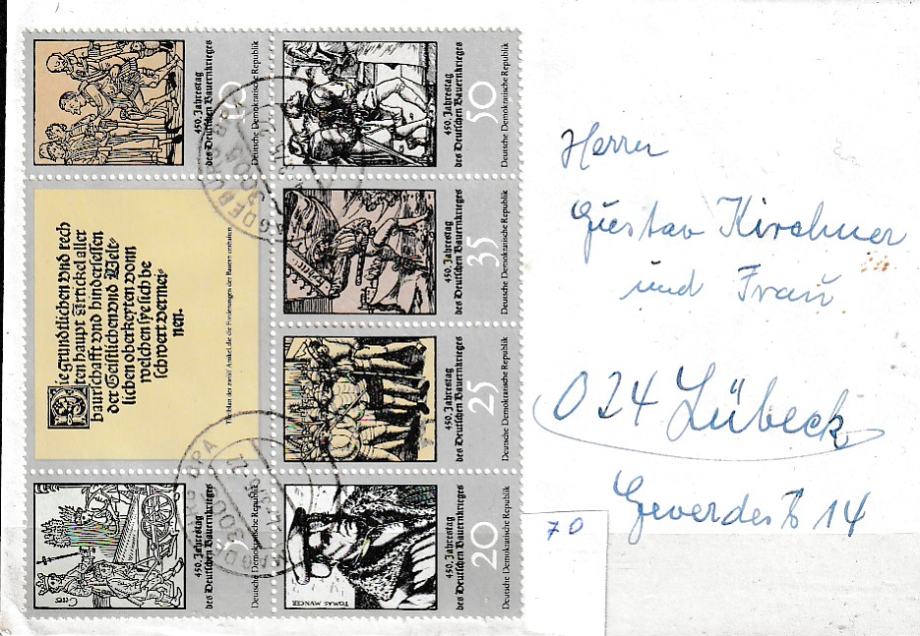 450. Jahrestag
des Deutschen Bauernkrieges
Deutsche Demokratische Republik
450. Jahrestag
des Deutschen Bauernkrieges
50
Deutsche Demokratische Republik
Die grundtlichen vnd rech
ten haupt Artickel aller
baurschafft vnd hindersessen
der Geistlichen vnd Welt-
lichen oberkeyten vonn
welchen sie sich be
schwert vermei-
nen.
Titelblatt der zwölf Artikel, die die Forderungen der Bauern enthalten
450. Jahrestag
des Deutschen Bauernkrieges
35
Deutsche Demokratische Republik
450. Jahrestag
des Deutschen Bauernkrieges
25
Deutsche Demokratische Republik
450. Jahrestag
des Deutschen Bauernkrieges
5
Deutsche Demokratische Republik
TOMAS MVNCER
450. Jahrestag
des Deutschen Bauernkrieges
20
Deutsche Demokratische Republik
Herrn
Gustav Kirchner
und Frau
024 Lübeck
14
70